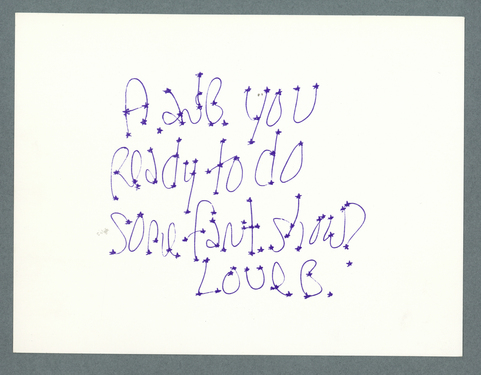 A. and B. you
Ready to do
some fant. show?
Love B.